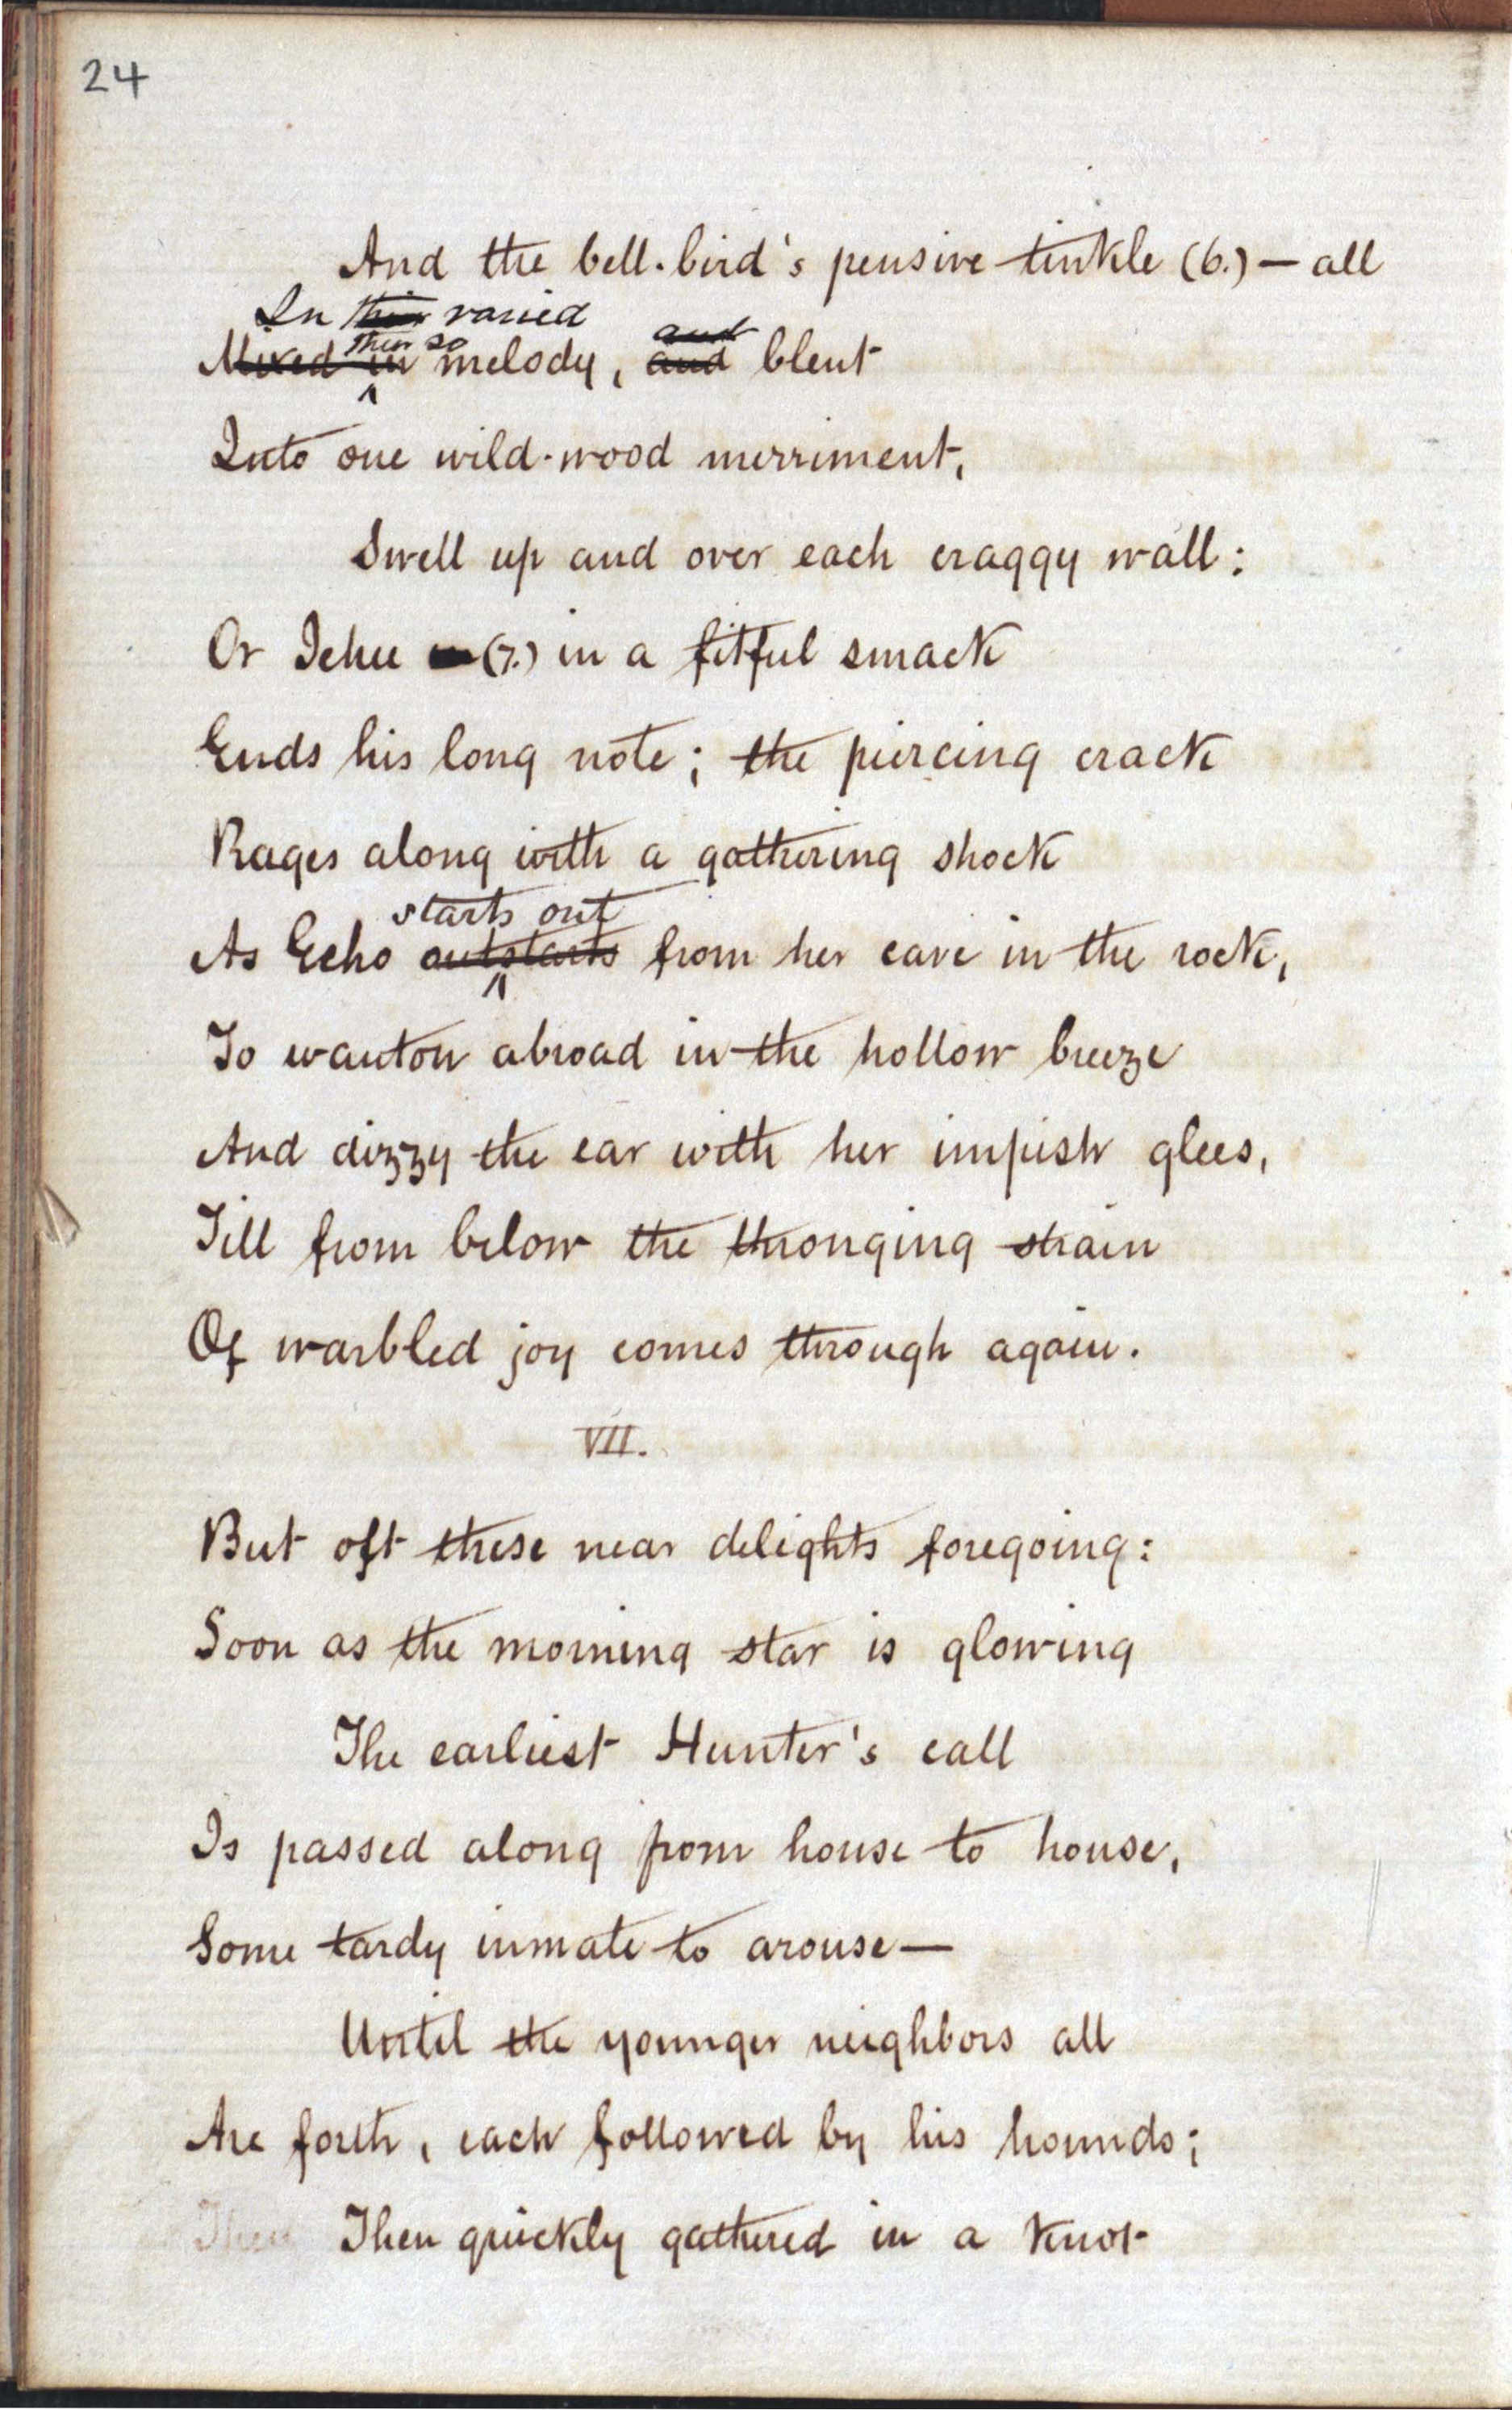 24
And the bell-bird's pensive tinkle (6.) — all
In this varied
then so
and
Mixed in melody, and blent
Into one wild-wood merriment,
Swell up and over each craggy wall:
Or Jehu (7.) in a fitful smack
Ends his long note; the piercing crack
Rages along with a gathering shock
starts out
As Echo outstarts from her cave in the rock,
To wanton abroad in the hollow breeze
And dizzy the ear with her impish glees,
Till from below the thronging strain
Of warbled joy comes through again.
VII.
But oft these near delights foregoing:
Soon as the morning star is glowing
The earliest Hunter's call
Is passed along from house to house,
Some tardy inmate to arouse—
Until the younger neighbors all
Are forth, each followed by his hounds;
Then Then quickly gathered in a knot